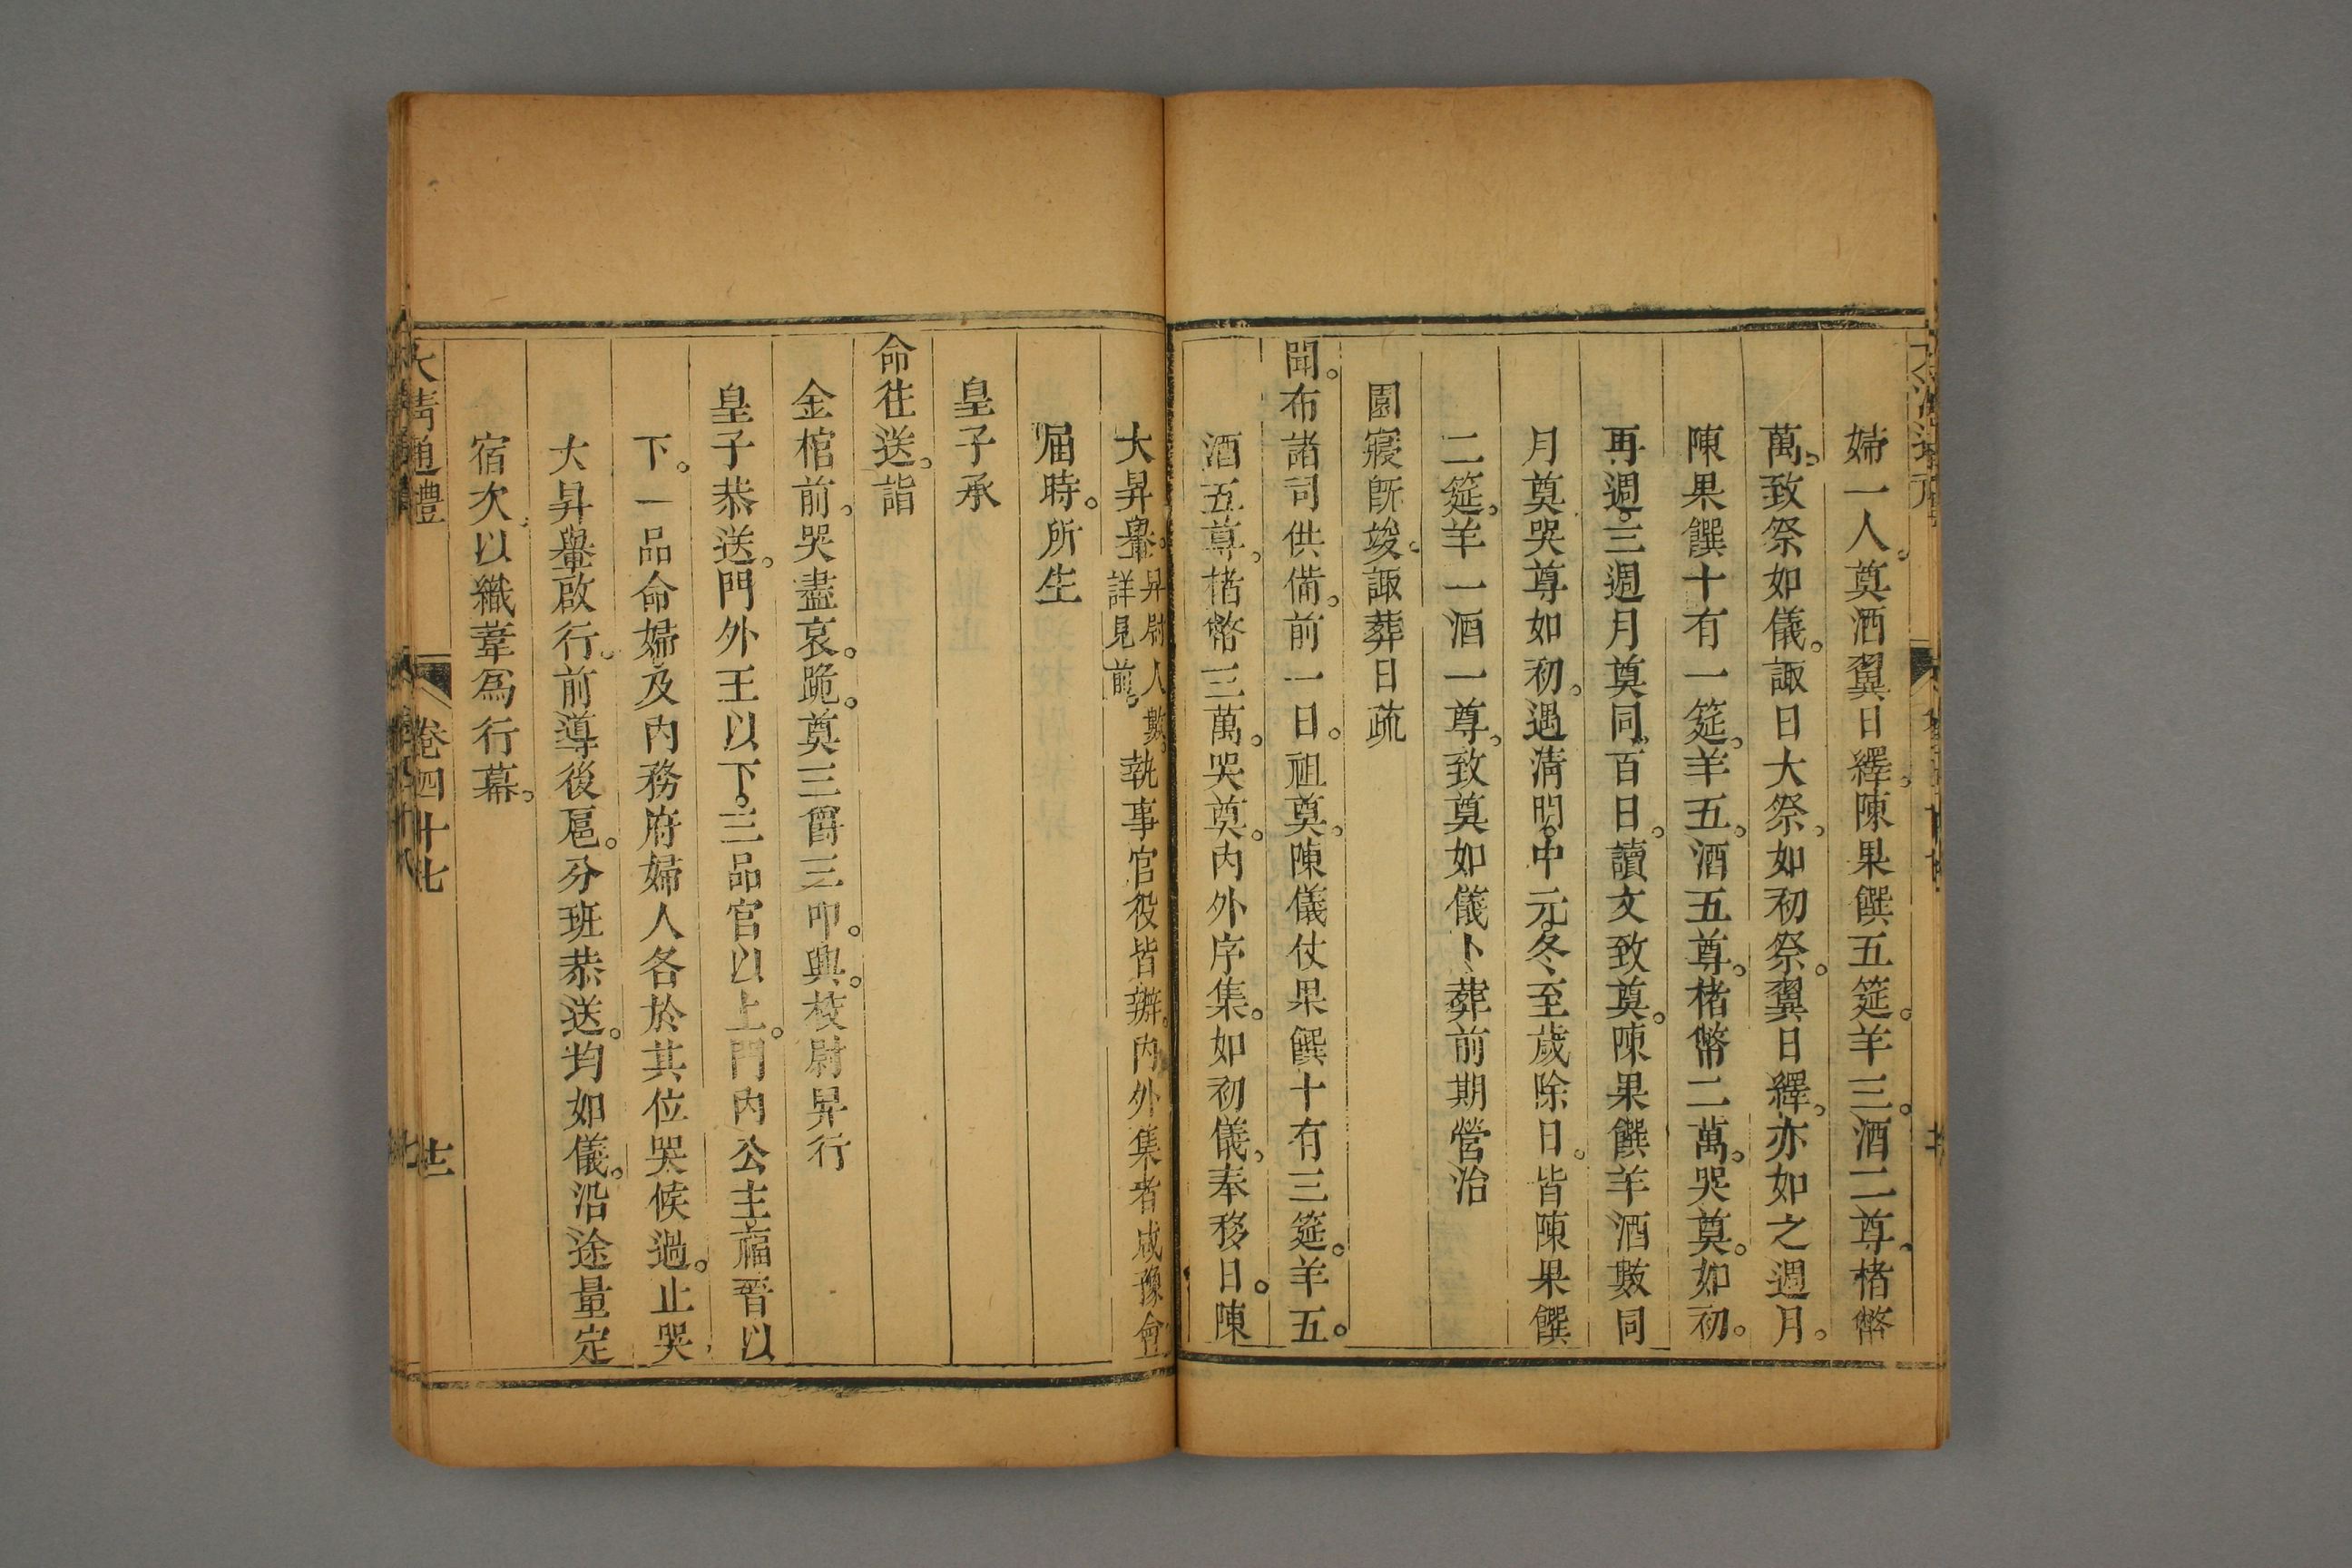 婦一人。奠酒翼日繹。陳果饌五筵。羊三。酒二尊。楮幣
萬。致祭如儀。諏日大祭。如初祭。翼日繹。亦如之週月。
陳果饌十有一筵。羊五。酒五尊。楮幣二萬。哭奠。如初。
再週。三週月奠同。百日。讀文致奠。陳果饌羊酒數同
月奠哭尊如初。遇淸明。中元。冬至歲除日。皆陳果饌
二筵。羊一酒一尊。致奠如儀卜葬前期營治
園寢旣竣。諏葬日疏
聞。布諸司供備。前一日。祖奠。陳儀仗果饌十有三筵。羊五。
酒五尊。楮幣三萬。哭奠。內外序集。如初儀。奉移日。陳
大昇轝。昇尉人數。詳見前。執事官役皆辦。內外集者咸豫會
屆時。所生
皇子承
命往送。詣
金棺前。哭盡哀。跪。奠三爵三叩。興。校尉昇行
皇子恭送。門外王以下。三品官以上。門內公主福晉以
下。一品命婦及內務府婦人各於其位哭候過。止哭
大昇轝啟行。前導後扈。分班恭送。均如儀。沿途量定
宿次。以織葦爲行幕。
大淸通禮 卷四十七 十二